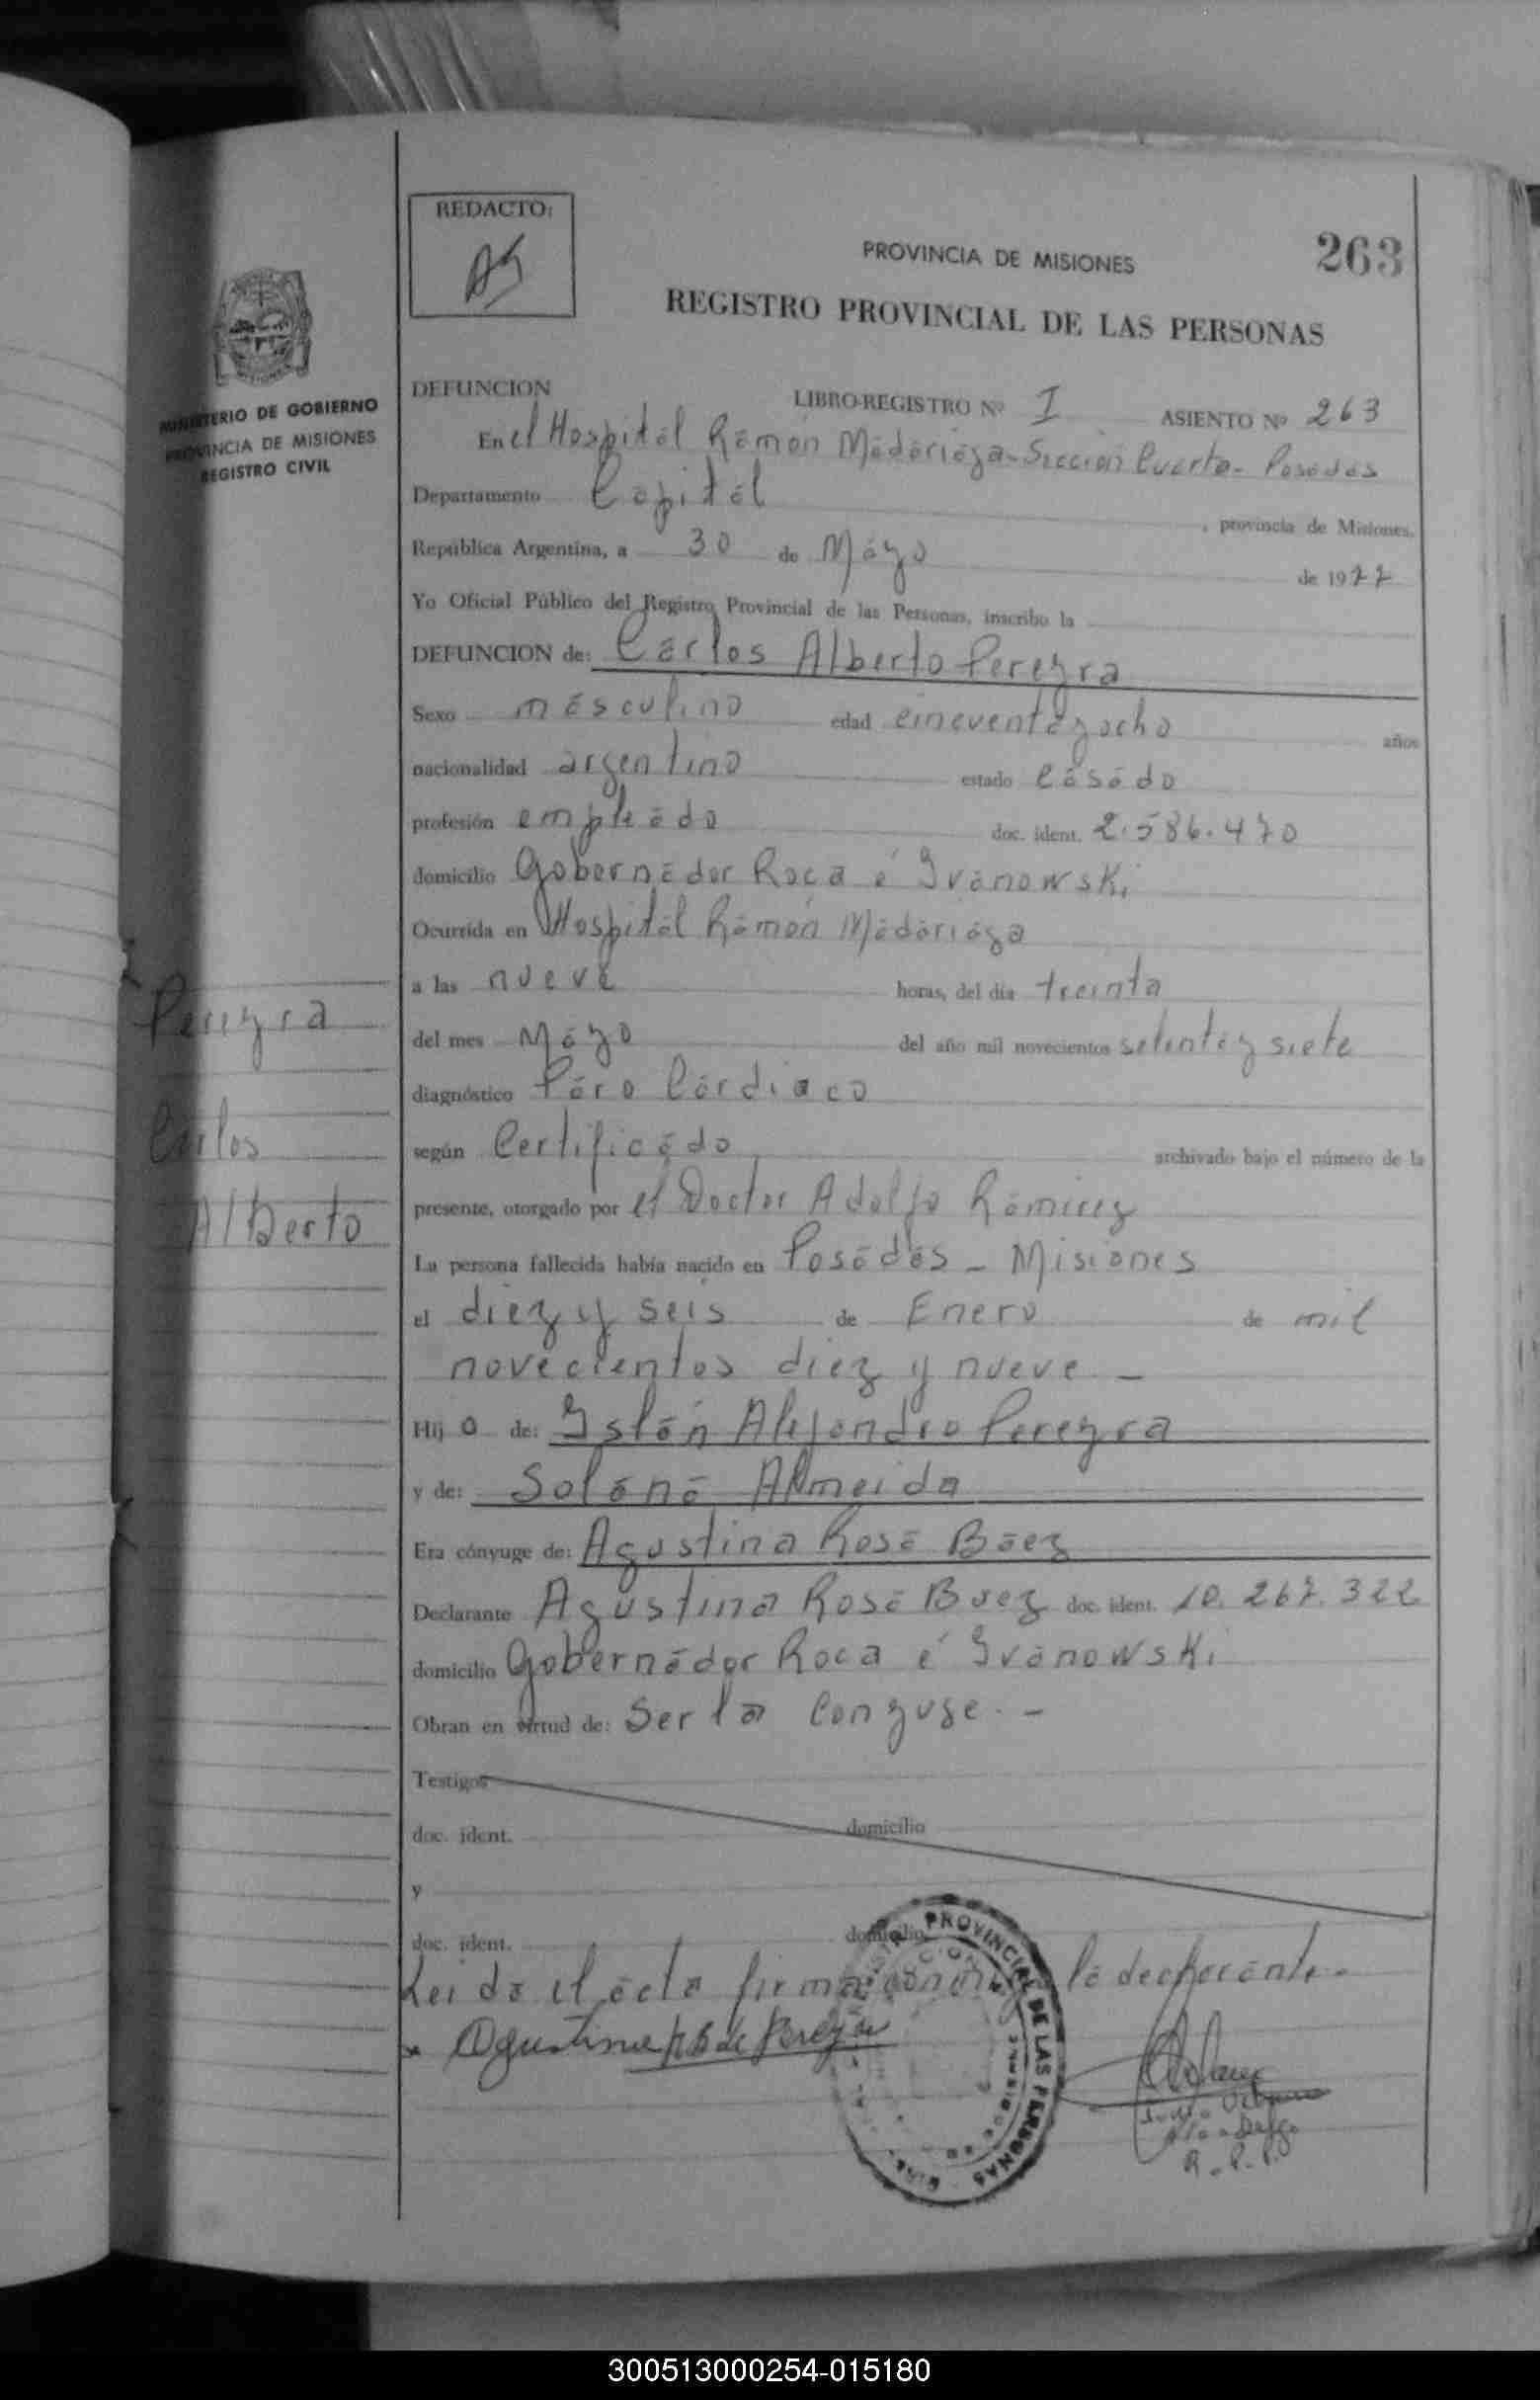 REDACTO:
PROVINCIA DE MISIONES
263
REGISTRO PROVINCIAL DE LAS PERSONAS
MINISTERIO DE GOBIERNO
PROVINCIA DE MISIONES
REGISTRO CIVIL
DEFUNCION LIBRO-REGISTRO Nº I ASIENTO Nº 263
En el Hospital Ramón Madariaga - Sección Cuarta - Posadas
Departamento Capital , provincia de Misiones.
República Argentina, a 30 de Mayo de 1977
Yo Oficial Público del Registro Provincial de las Personas, inscribo la
DEFUNCION de: Carlos Alberto Pereyra
Sexo masculino edad cincuenta y ocho años
nacionalidad argentino estado Casado
profesión empleado doc. ident. 2.586.470
domicilio Gobernador Roca é Ivanowski
Ocurrida en Hospital Ramón Madariaga
a las nueve horas, del día treinta
del mes Mayo del año mil novecientos setenta y siete
diagnóstico Paro Cardiaco
según Certificado archivado bajo el número de la
presente, otorgado por el Doctor Adolfo Ramirez
La persona fallecida había nacido en Posadas - Misiones
el diez y seis de Enero de mil
novecientos diez y nueve -
Hij o de: Islán Alejandro Pereyra
y de: Solana Almeida
Era cónyuge de: Agustina Rosa Báez
Declarante Agustina Rosa Baez doc. ident. 10.267.322
domicilio Gobernador Roca é Ivanowski
Obran en virtud de: Ser la Conyuge. -
Testigos
doc. ident. domicilio
y
doc. ident. domicilio
Leida el acta firma la declarante.
Agustina R B de Pereyra
R.P.P.
Pereyra
Carlos
Alberto
PROVINCIAL DE LAS PERSONAS
300513000254-015180